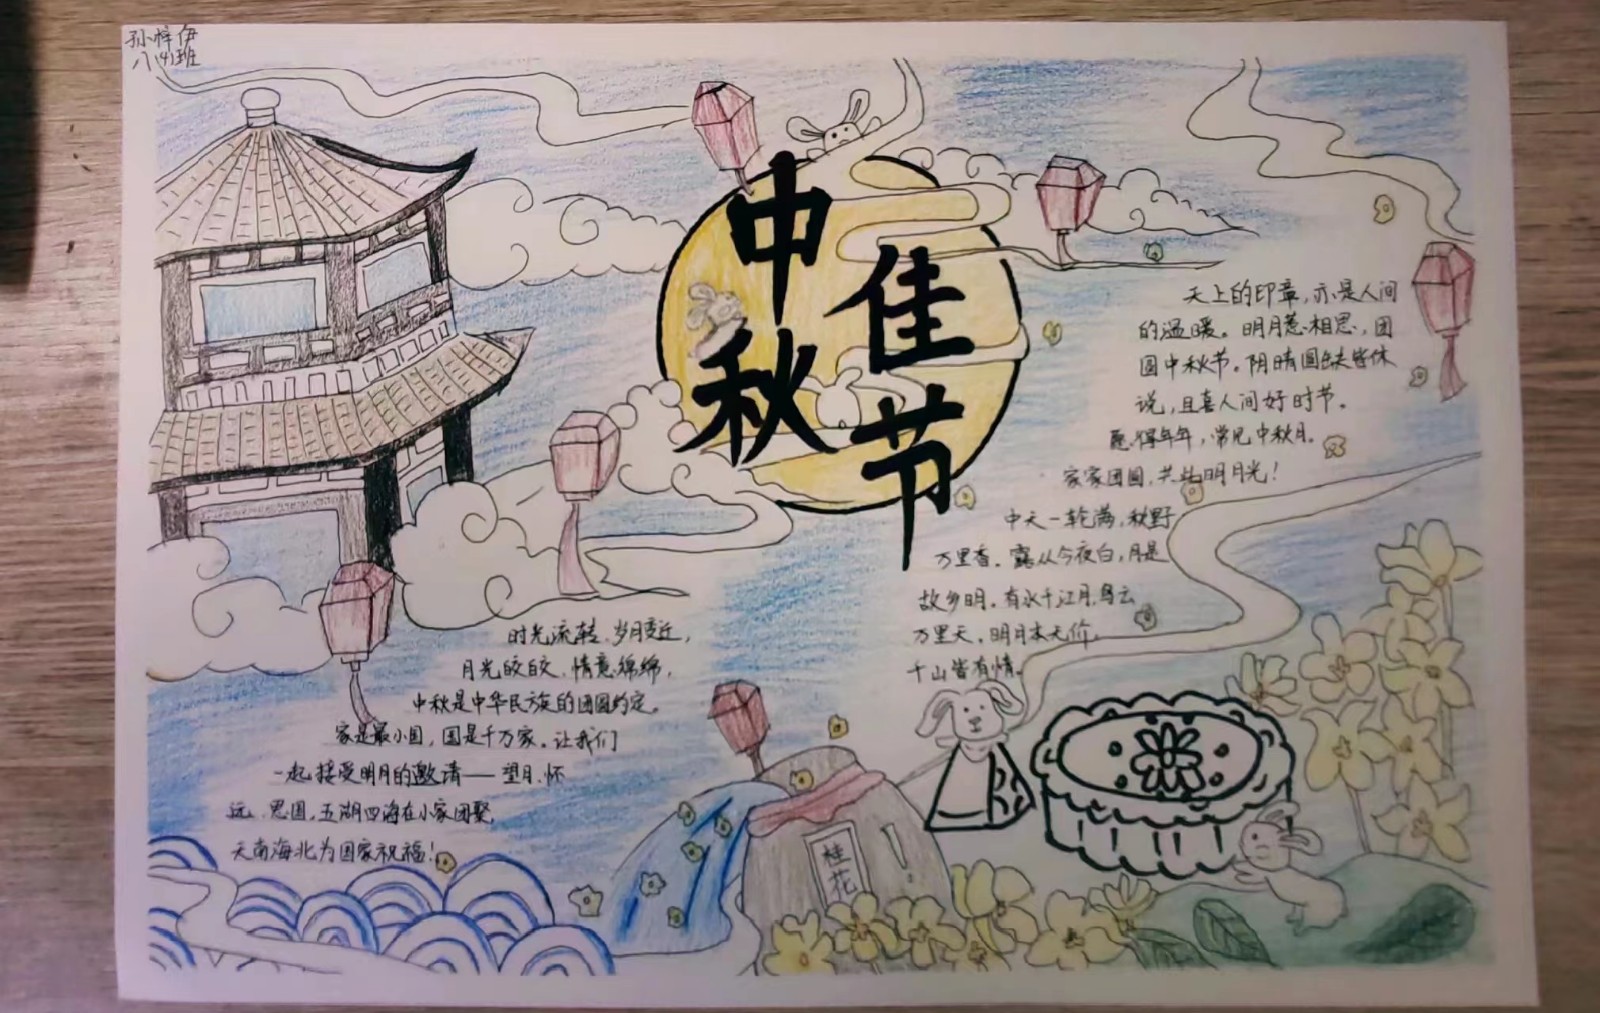 孙梓伊
八(4)班
中秋
佳节
天上的印章,亦是人间
的温暖。明月惹相思,团
圆中秋节。阴晴圆缺皆休
说,且喜人间好时节。
愿得年年,常见中秋月。
家家团圆,共此明月光!
中天一轮满,秋野
万里香。露从今夜白,月是
故乡明。有水千江月,鸟云
万里天。明月本无价,
千山皆有情。
时光流转、岁月变迁,
月光皎皎、情意绵绵,
中秋是中华民族的团圆约定。
家是最小国,国是千万家。让我们
一起接受明月的邀请——望月、怀
远、思国,五湖四海在小家团聚,
天南海北为国家祝福!
桂花